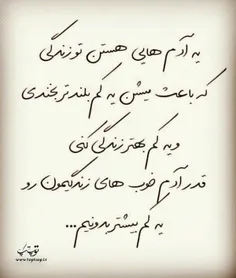 یه آدم هایی هستن تو زندگی
که باعث میشن یه کم بلندتر بخندی
و یه کم بهتر زندگی کنی
قدر آدم خوب های زندگیمون رو
یه کم بیشتر بدونیم...
توپ تاپ
www.toptoop.ir